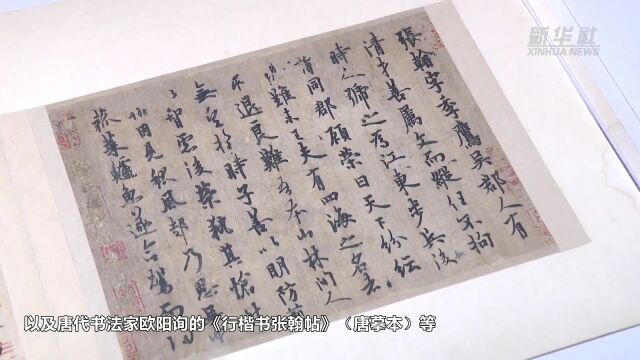 新华社
XINHUA NEWS
張翰字季鷹吳郡人有
清才善屬文而縱任不拘
時人號之為江東步兵後
謂同郡顧榮曰天下紛紜
禍難未已夫有四海之名者
求退良難吾本山林間人
無望於時子善以明防
以智慮後榮執其愴
翰因見秋風起乃思
菰菜鱸魚遂命駕而
以及唐代书法家欧阳询的《行楷书张翰帖》（唐摹本）等